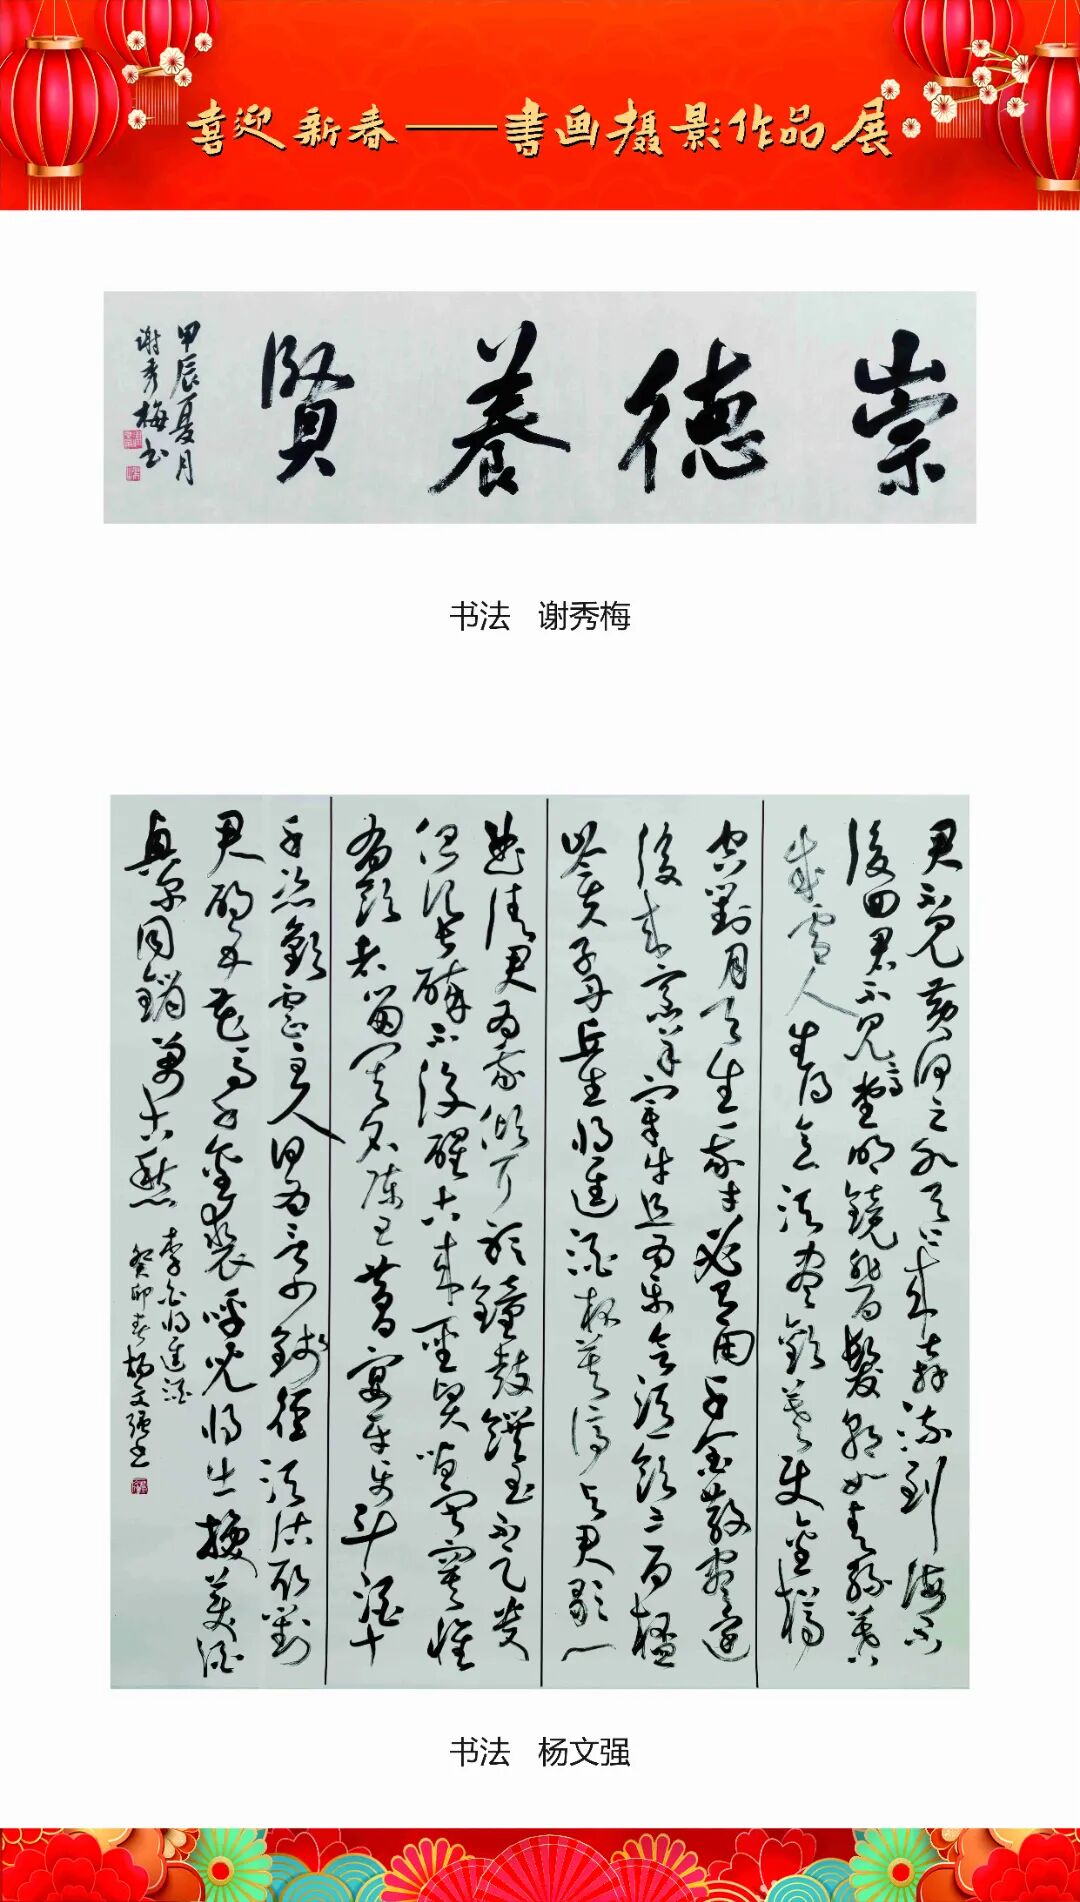 喜迎新春——书画摄影作品展
崇德養賢
甲辰夏月
谢秀梅书
书法 谢秀梅
君不见黄河之水天上来奔流到海不
復回君不见高堂明鏡悲白髮朝如青絲暮
成雪人生得意須盡歡莫使金樽
空對月天生我才必有用千金散盡還
復来烹羊宰牛且為樂會須飲三百杯
岑夫子丹丘生將進酒杯莫停與君歌一
曲請君為我傾耳聽鐘鼓饌玉不足貴
但願長醉不復醒古来聖賢皆寂寞惟
有飲者留其名陳王昔宴平樂斗酒十
千恣歡謔主人何為言少錢徑須沽取對
君酌五花馬千金裘呼兒將出換美酒
與爾同銷萬古愁
李白將進酒
癸卯春杨文强书
书法 杨文强